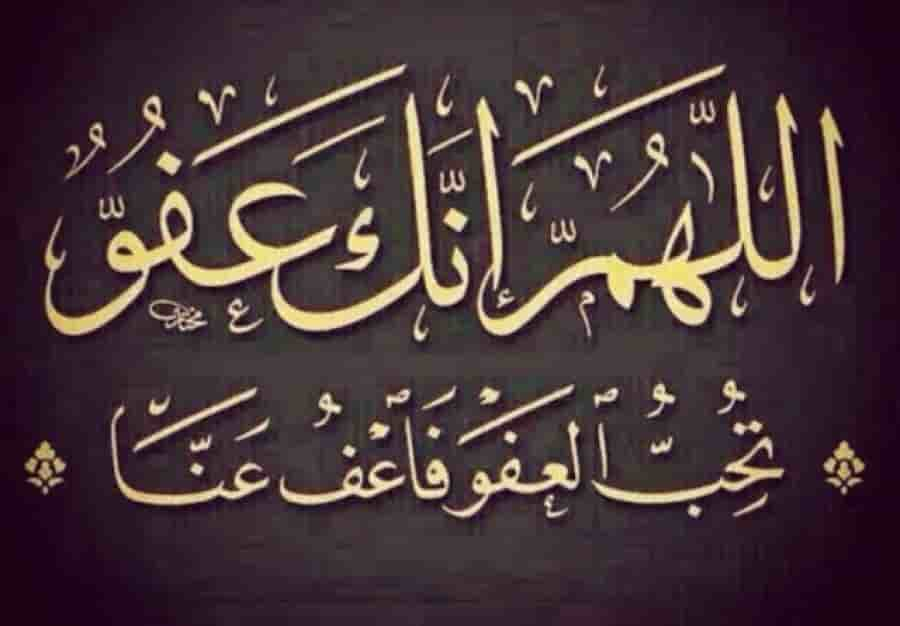 اللَّهُمَّ إِنَّكَ عَفُوٌّ
تُحِبُّ ٱلْعَفْوَ فَٱعْفُ عَنَّا